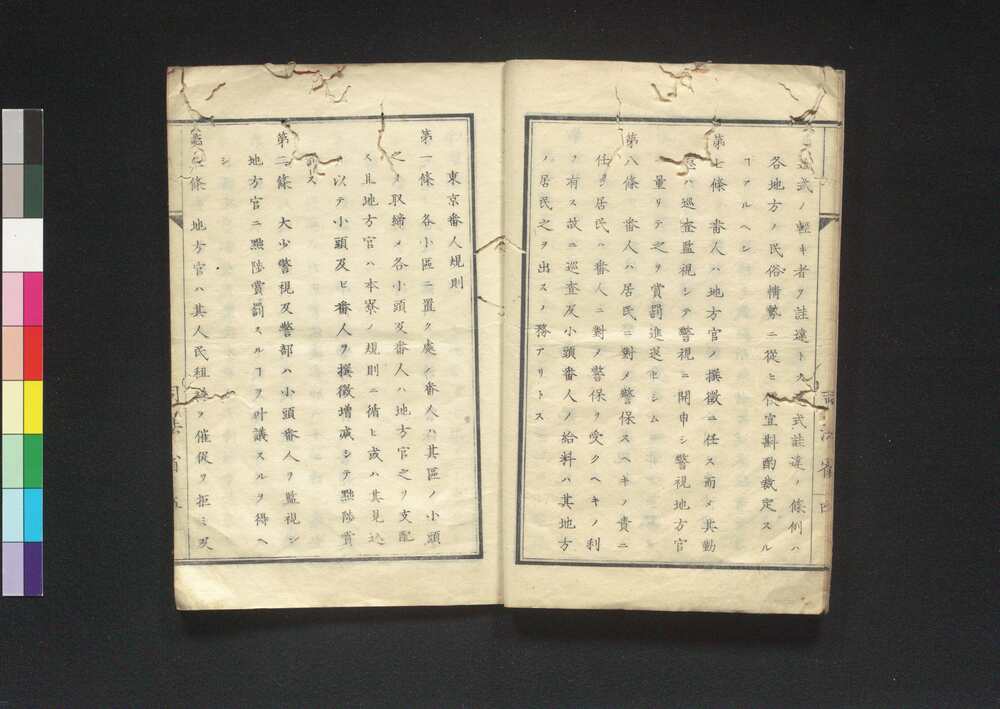 違式ノ輕キ者ヲ詿違トス違式詿違ノ條例ハ
各地方ノ民俗情勢ニ從ヒ便宜斟酌裁定スル
ヿアルヘシ
第七條 番人ハ地方官ノ撰徵ニ任ス而メ其勤
怠ハ巡査監視シテ警視ニ開申シ警視地方官
ニ量リテ之ヲ賞罰進退セシム
第八條 番人ハ居民ニ對メ警保スヘキノ責ニ
任シ居民ハ番人ニ對メ警保ヲ受クヘキノ利
ヲ有ス故ニ巡査及小頭番人ノ給料ハ其地方
ノ居民之ヲ出スノ務アリトス
司法省 四
東京番人規則
第一條 各小區ニ置ク處ノ番人ハ其區ノ小頭
之ヲ取締メ各小頭及番人ハ地方官之ヲ支配
ス且地方官ハ本寮ノ規則ニ循ヒ或ハ其見込
ヲ以テ小頭及ヒ番人ヲ撰徵增减シテ黜陟賞
罰ス
第二條 大少警視及警部ハ小頭番人ヲ監視シ
地方官ニ黜陟賞罰スルヿヲ叶議スルヲ得ヘ
シ
第三條 地方官ハ其人民租税ヲ催促ヲ拒ミ及
司法省 五